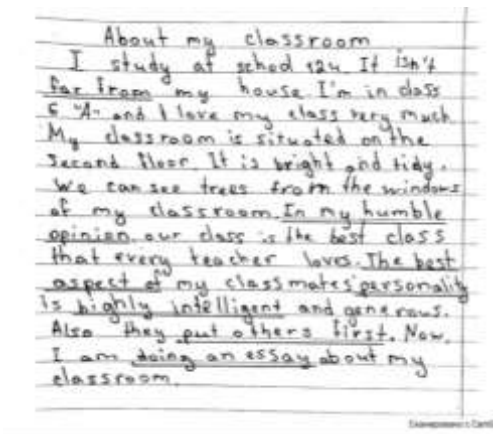 About my classroom
I study at school 124. It isn't
far from my house. I'm in class
6 "A" and I love my class very much.
My classroom is situated on the
second floor. It is bright and tidy.
We can see trees from the windows
of my classroom. In my humble
opinion our class is the best class
that every teacher loves. The best
aspect of my classmates' personality
is highly intelligent and generous.
Also they put others first. Now,
I am doing an essay about my
classroom.